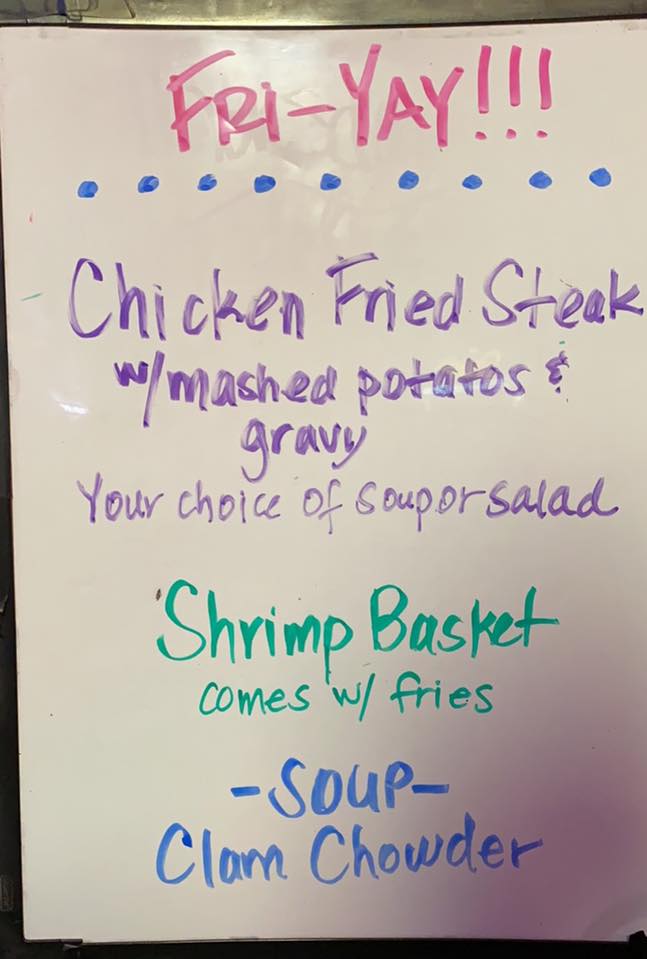 FRI-YAY!!!
Chicken Fried Steak
w/mashed potatos &
gravy
Your choice of soup or salad
Shrimp Basket
comes w/ fries
-SOUP-
Clam Chowder